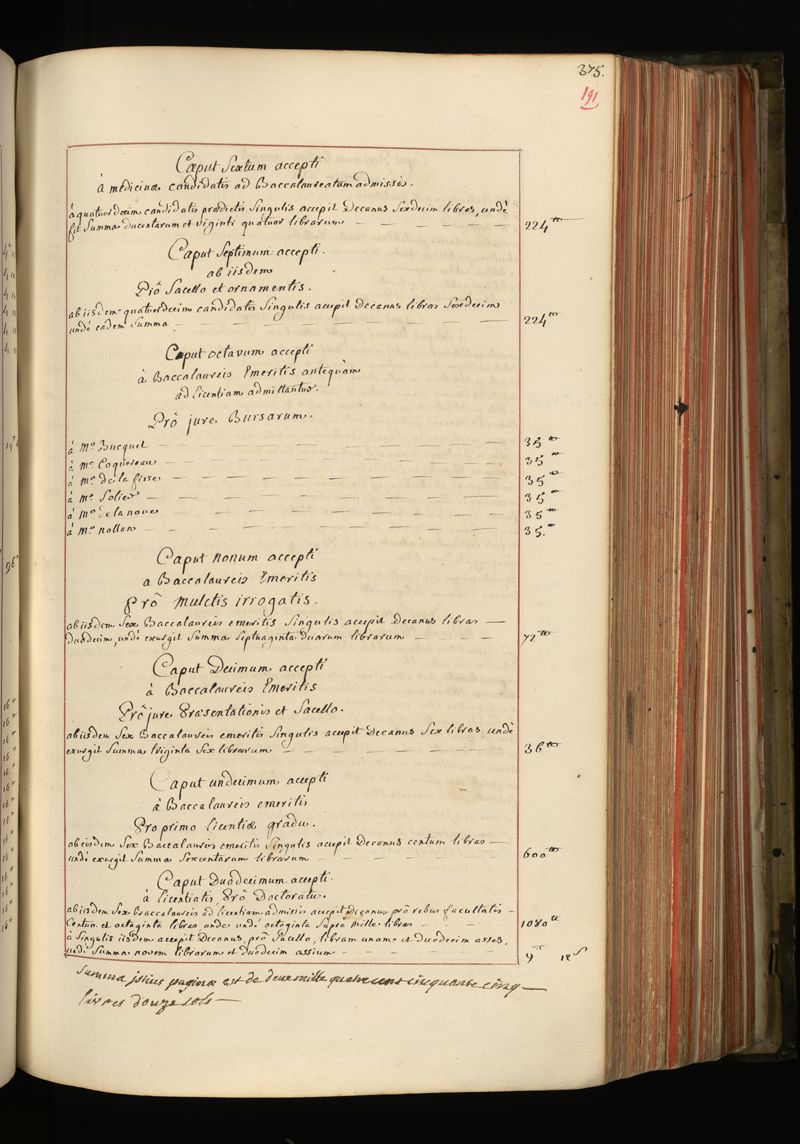 375.
191
Caput Sextum accepti
à medicinæ candidatis ad Baccalaureatum admissis.
à quatuordecim candidatis prædictis Singulis accepit Decanus Sexdecim libras, undè
fit Summa ducentarum et viginti quatuor librarum 224
Caput Septimum accepti.
ab iisdem
Prô Sacello et ornamentis.
ab iisdem quatuordecim candidatis Singulis accepit Decanus libras Sexdecim
undè eadem Summa 224
Caput octavum accepti
à Baccalaureis Emeritis antequàm
ad licentiam admittantur.
Prô jure Bursarum.
à Mo Bucquet 35
à Mo Coquereau 35
à Mo de la fisse 35
à Mo Solier 35
à Mo de la noue 35
à Mo nollan 35.
Caput nonum accepti
a Baccalaureis Emeritis
Prô mulctis irrogatis.
ab iisdem Sex Baccalaureis emeritis Singulis accepit Decanus libras
Duodecim, undè exurgit Summa Septuaginta duarum librarum 72
Caput Decimum accepti
à Baccalaureis Emeritis
Prô jure Præsentationis et Sacello.
ab iisdem Sex Baccalaureis emeritis Singulis accepit Decanus Sex libras undè
exurgit Summa triginta Sex librarum 36
Caput undecimum accepti
à Baccalaureis emeritis
Pro primo licentiæ gradu.
ab eisdem Sex Baccalaureis emeritis Singulis accepit Decanus centum libras
undè exurgit Summa Sexcentarum librarum 600
Caput Duodecimum accepti.
à licentiatis Prô Doctoratu.
ab iisdem Sex braccalaureis ad licentiam admissis accepit Decanus prô rebus facultatis
Centum et octoginta libras unde undè octoginta Supra mille libras 1080
à Singulis iisdem accepit Decanus, prô Sacello, libram unam et duodecim asses,
undè Summa novem librarum et duodecim assium 9 12 s
Summa istius paginæ est de deux mille quatre cent cinquante cinq
livres douze sols